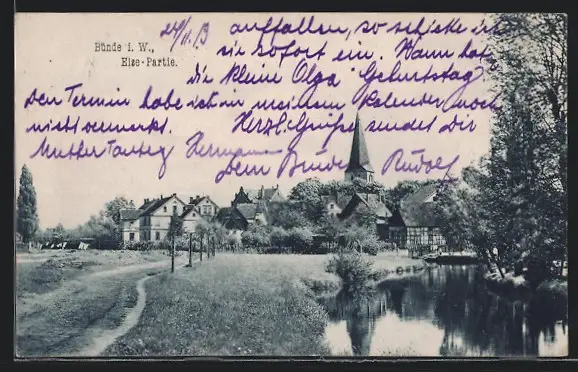 Bünde i. W.,
Else-Partie.
24/11.13
auffallen, so schicke ich
sie sofort ein. Wann hat
die kleine Olga Geburtstag
Den Termin habe ich in meinem Kalender noch
nicht vermerkt. Herzl. Grüße sendet Dir
Mutter Hermann Dein Bruder Rudolf